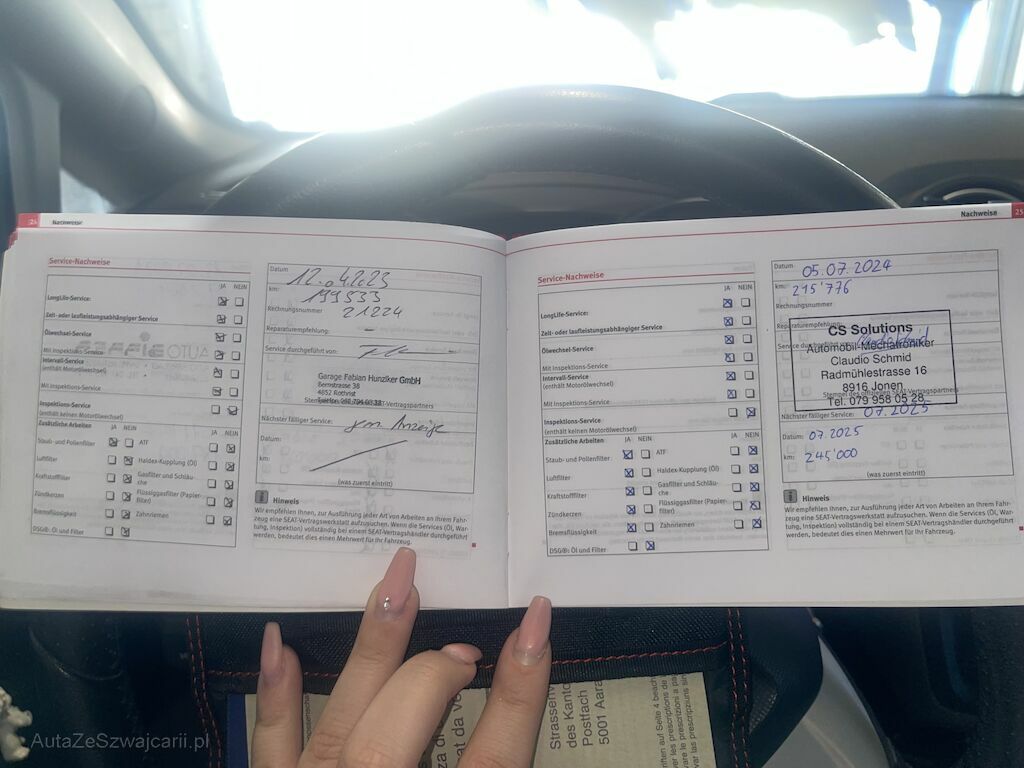 24 Nachweise
Service-Nachweise
JA NEIN
LongLife-Service:
Zeit- oder laufleistungsabhängiger Service
Ölwechsel-Service:
Mit Inspektions-Service
Intervall-Service
(enthält Motorölwechsel)
Mit Inspektions-Service:
Inspektions-Service
(enthält keinen Motorölwechsel)
Zusätzliche Arbeiten JA NEIN JA NEIN
Staub- und Pollenfilter ATF
Luftfilter Haldex-Kupplung (Öl)
Kraftstofffilter Gasfilter und Schläuche
Zündkerzen Flüssiggasfilter (Papierfilter)
Bremsflüssigkeit Zahnriemen
DSG®: Öl und Filter
Datum 12.04.2023
km: 199333
Rechnungsnummer 21224
Reparaturempfehlung: –
Service durchgeführt von:
Garage Fabian Hunziker GmbH
Bernstrasse 38
4852 Rothrist
Nächster fälliger Service: gem. Anzeige
Datum:
km:
(was zuerst eintritt)
i Hinweis
Wir empfehlen Ihnen, zur Ausführung jeder Art von Arbeiten an Ihrem Fahr-
zeug eine SEAT-Vertragswerkstatt aufzusuchen. Wenn die Services (Öl, War-
tung, Inspektion) vollständig bei einem SEAT-Vertragshändler durchgeführt
werden, bedeutet dies einen Mehrwert für Ihr Fahrzeug.
Nachweise 25
Service-Nachweise
JA NEIN
LongLife-Service:
Zeit- oder laufleistungsabhängiger Service
Ölwechsel-Service:
Mit Inspektions-Service
Intervall-Service
(enthält Motorölwechsel)
Mit Inspektions-Service:
Inspektions-Service
(enthält keinen Motorölwechsel)
Zusätzliche Arbeiten JA NEIN JA NEIN
Staub- und Pollenfilter ATF
Luftfilter Haldex-Kupplung (Öl)
Kraftstofffilter Gasfilter und Schläu-
che
Zündkerzen Flüssiggasfilter (Papier-
filter)
Bremsflüssigkeit Zahnriemen
DSG®: Öl und Filter
Datum 05.07.2024
km: 215'776
Rechnungsnummer
Reparaturempfehlung
CS Solutions
Automobil-Mechatroniker
Claudio Schmid
Radmühlestrasse 16
8916 Jonen
Tel. 079 958 05 28
Nächster fälliger Service: 07.2025
Datum: 07.2025
km: 245'000
(was zuerst eintritt)
i Hinweis
Wir empfehlen Ihnen, zur Ausführung jeder Art von Arbeiten an Ihrem Fahr-
zeug eine SEAT-Vertragswerkstatt aufzusuchen. Wenn die Services (Öl, War-
tung, Inspektion) vollständig bei einem SEAT-Vertragshändler durchgeführt
werden, bedeutet dies einen Mehrwert für Ihr Fahrzeug.
Strassenv
des Kanto
Postfach
5001 Aara
AutaZeSzwajcarii.pl